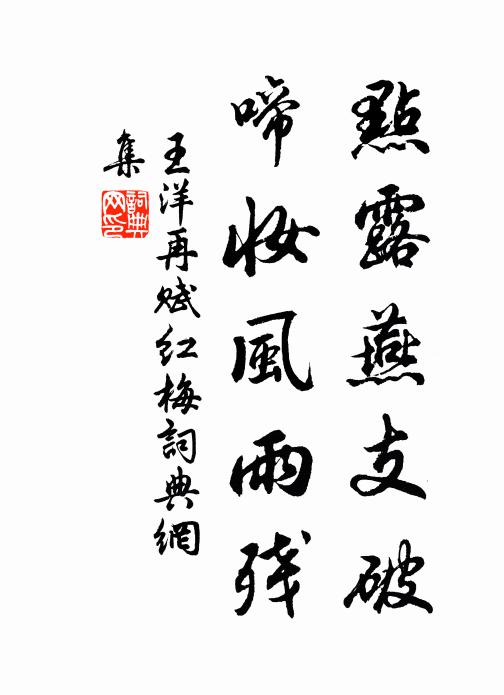 點露燕支破
啼妝風雨残
王洋再赋红梅詞典網
集
詞典
网印